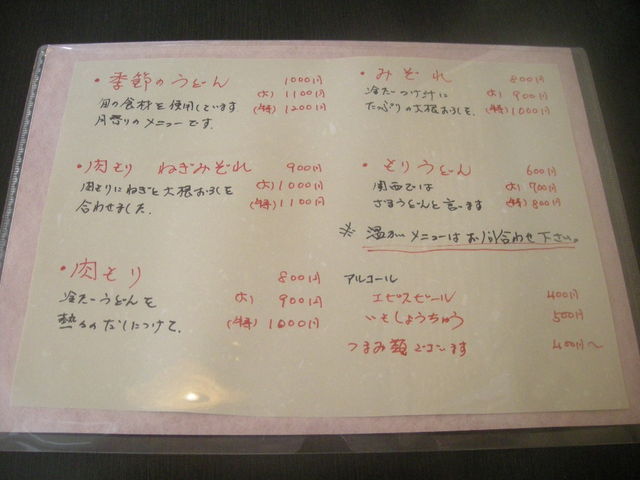 ・季節のうどん 1000円
旬の食材を使用しています (大) 1100円
月替りのメニューです。 (特) 1200円
・肉もり ねぎみぞれ 900円
肉もりにねぎと大根おろしを (大) 1000円
合わせました。 (特) 1100円
・肉もり 800円
冷たいうどんを (大) 900円
熱々のだしにつけて。 (特) 1000円
・みぞれ 800円
冷たいつけ汁に (大) 900円
たっぷりの大根おろしを。 (特) 1000円
・もりうどん 600円
関西では (大) 700円
ざるうどんと言います (特) 800円
※ 温かいメニューはお問合わせ下さい。
アルコール
エビスビール 400円
いもしょうちゅう 500円
つまみ類ございます 400円〜